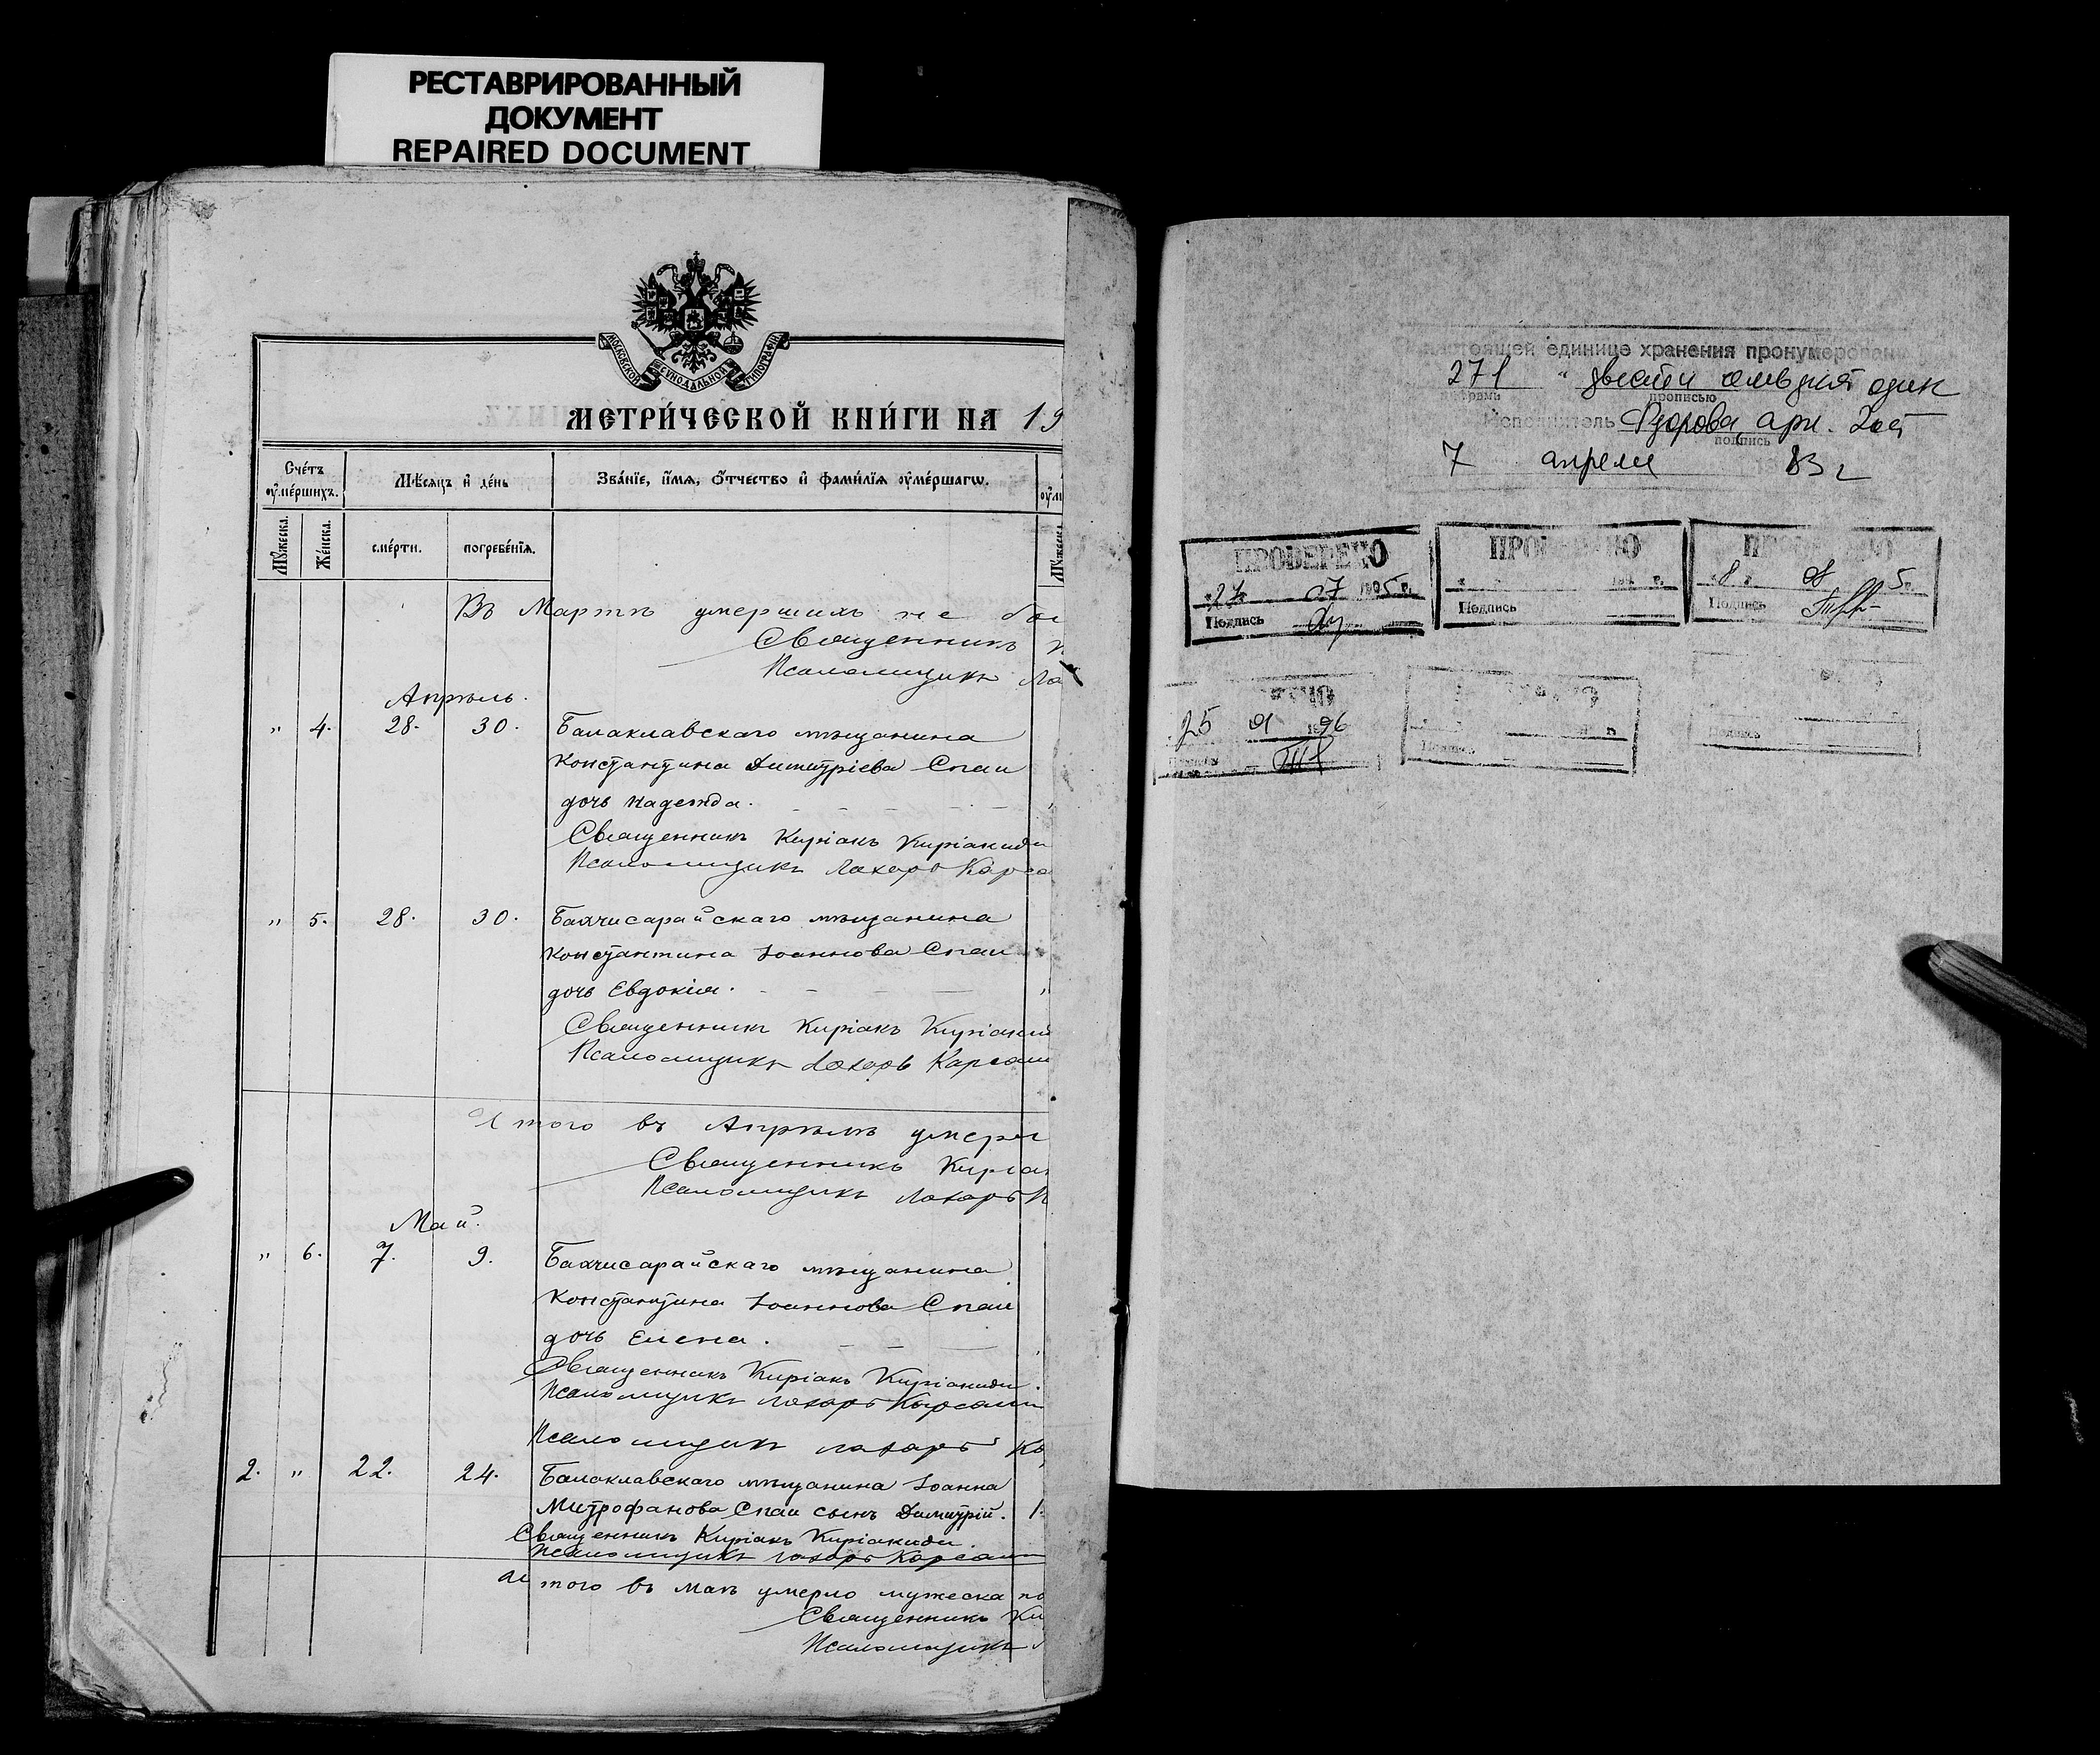 РЕСТАВРИРОВАННЫЙ
ДОКУМЕНТ
REPAIRED DOCUMENT
МОСКОВСКОЙ СѴНОДАЛЬНОЙ ТИПОГРАФІИ
МЕТРИ́ЧЕСКОЙ КНИ́ГИ НА 19
Сче́тъ ᲂу҆ме́ршихъ.
Мѣ́сѧцъ и҆ де́нь
Зва́нїе, и҆́мѧ, ѻ҆́тчество и҆ фами́лїѧ ᲂу҆ме́ршагѡ.
Мꙋ́жеска.
Же́нска.
сме́рти.
погребе́нїѧ.
Въ Мартѣ умершихъ не бы
Священникъ
Псаломщикъ Ла
Апрѣль.
" 4. 28. 30. Балаклавскаго мѣщанина
Константина Димитріева Спаи
дочь Надежда.
Священникъ Киріакъ Киріакиди
Псаломщикъ Лазарь Карса
" 5. 28. 30. Бахчисарайскаго мѣщанина
Константина Іоаннова Спаи
дочь Евдокія.
Священникъ Киріакъ Киріакид
Псаломщикъ Лазарь Карсам
Итого въ Апрѣлѣ умерл
Священникъ Киріак
Псаломщикъ Лазарь К
Май.
" 6. 7. 9. Бахчисарайскаго мѣщанина
Константина Іоаннова Спаи
дочь Елена.
Священникъ Киріакъ Киріакиди.
Псаломщикъ Лазарь Карсам
Псаломщикъ Лазарь Ка
2. " 22. 24. Балаклавскаго мѣщанина Іоанна
Митрофанова Спаи сынъ Димитрій. 1.
Священникъ Киріакъ Киріакиди.
Псаломщикъ Лазарь Карсам
Итого въ Маѣ умерло мужеска по
Священникъ Ки
Псаломщикъ
настоящей единице хранения пронумерован
271 " двести семьдесят один
цифрами прописью
Исполнитель
подпись
7 апреля 83 г
ПРОВЕРЕНО
27 07 1995 г.
Подпись
ПРОВЕРЕНО
Подпись
ПРОВЕРЕНО
Подпись
25 01 1996
Подпись
Подпись